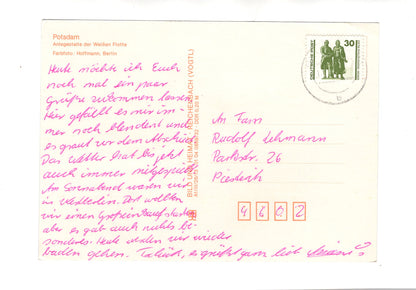 Potsdam
Anlegestelle der Weißen Flotte
Farbfoto: Hoffmann, Berlin
Heute möchte ich Euch
noch mal ein paar
Grüße zukommen lassen.
Hier gefällt es mir im-
mer noch blendend und
es graut vor dem Abschied.
Das Wetter hat bis jetzt
auch immer mitgespielt.
Am Sonnabend waren wir
in Westberlin. Dort wollten
wir einen Großeinkauf starten
aber es gab auch nichts be-
sonderes. Heute wollen wir wieder
baden gehen. Tschüß, es grüßt ganz lieb
BILD UND HEIMAT REICHENBACH (VOGTL)
DEUTSCHE POST
30
An Fam.
Rudolf Lehmann
Parkstr. 26
Piesteritz
4602